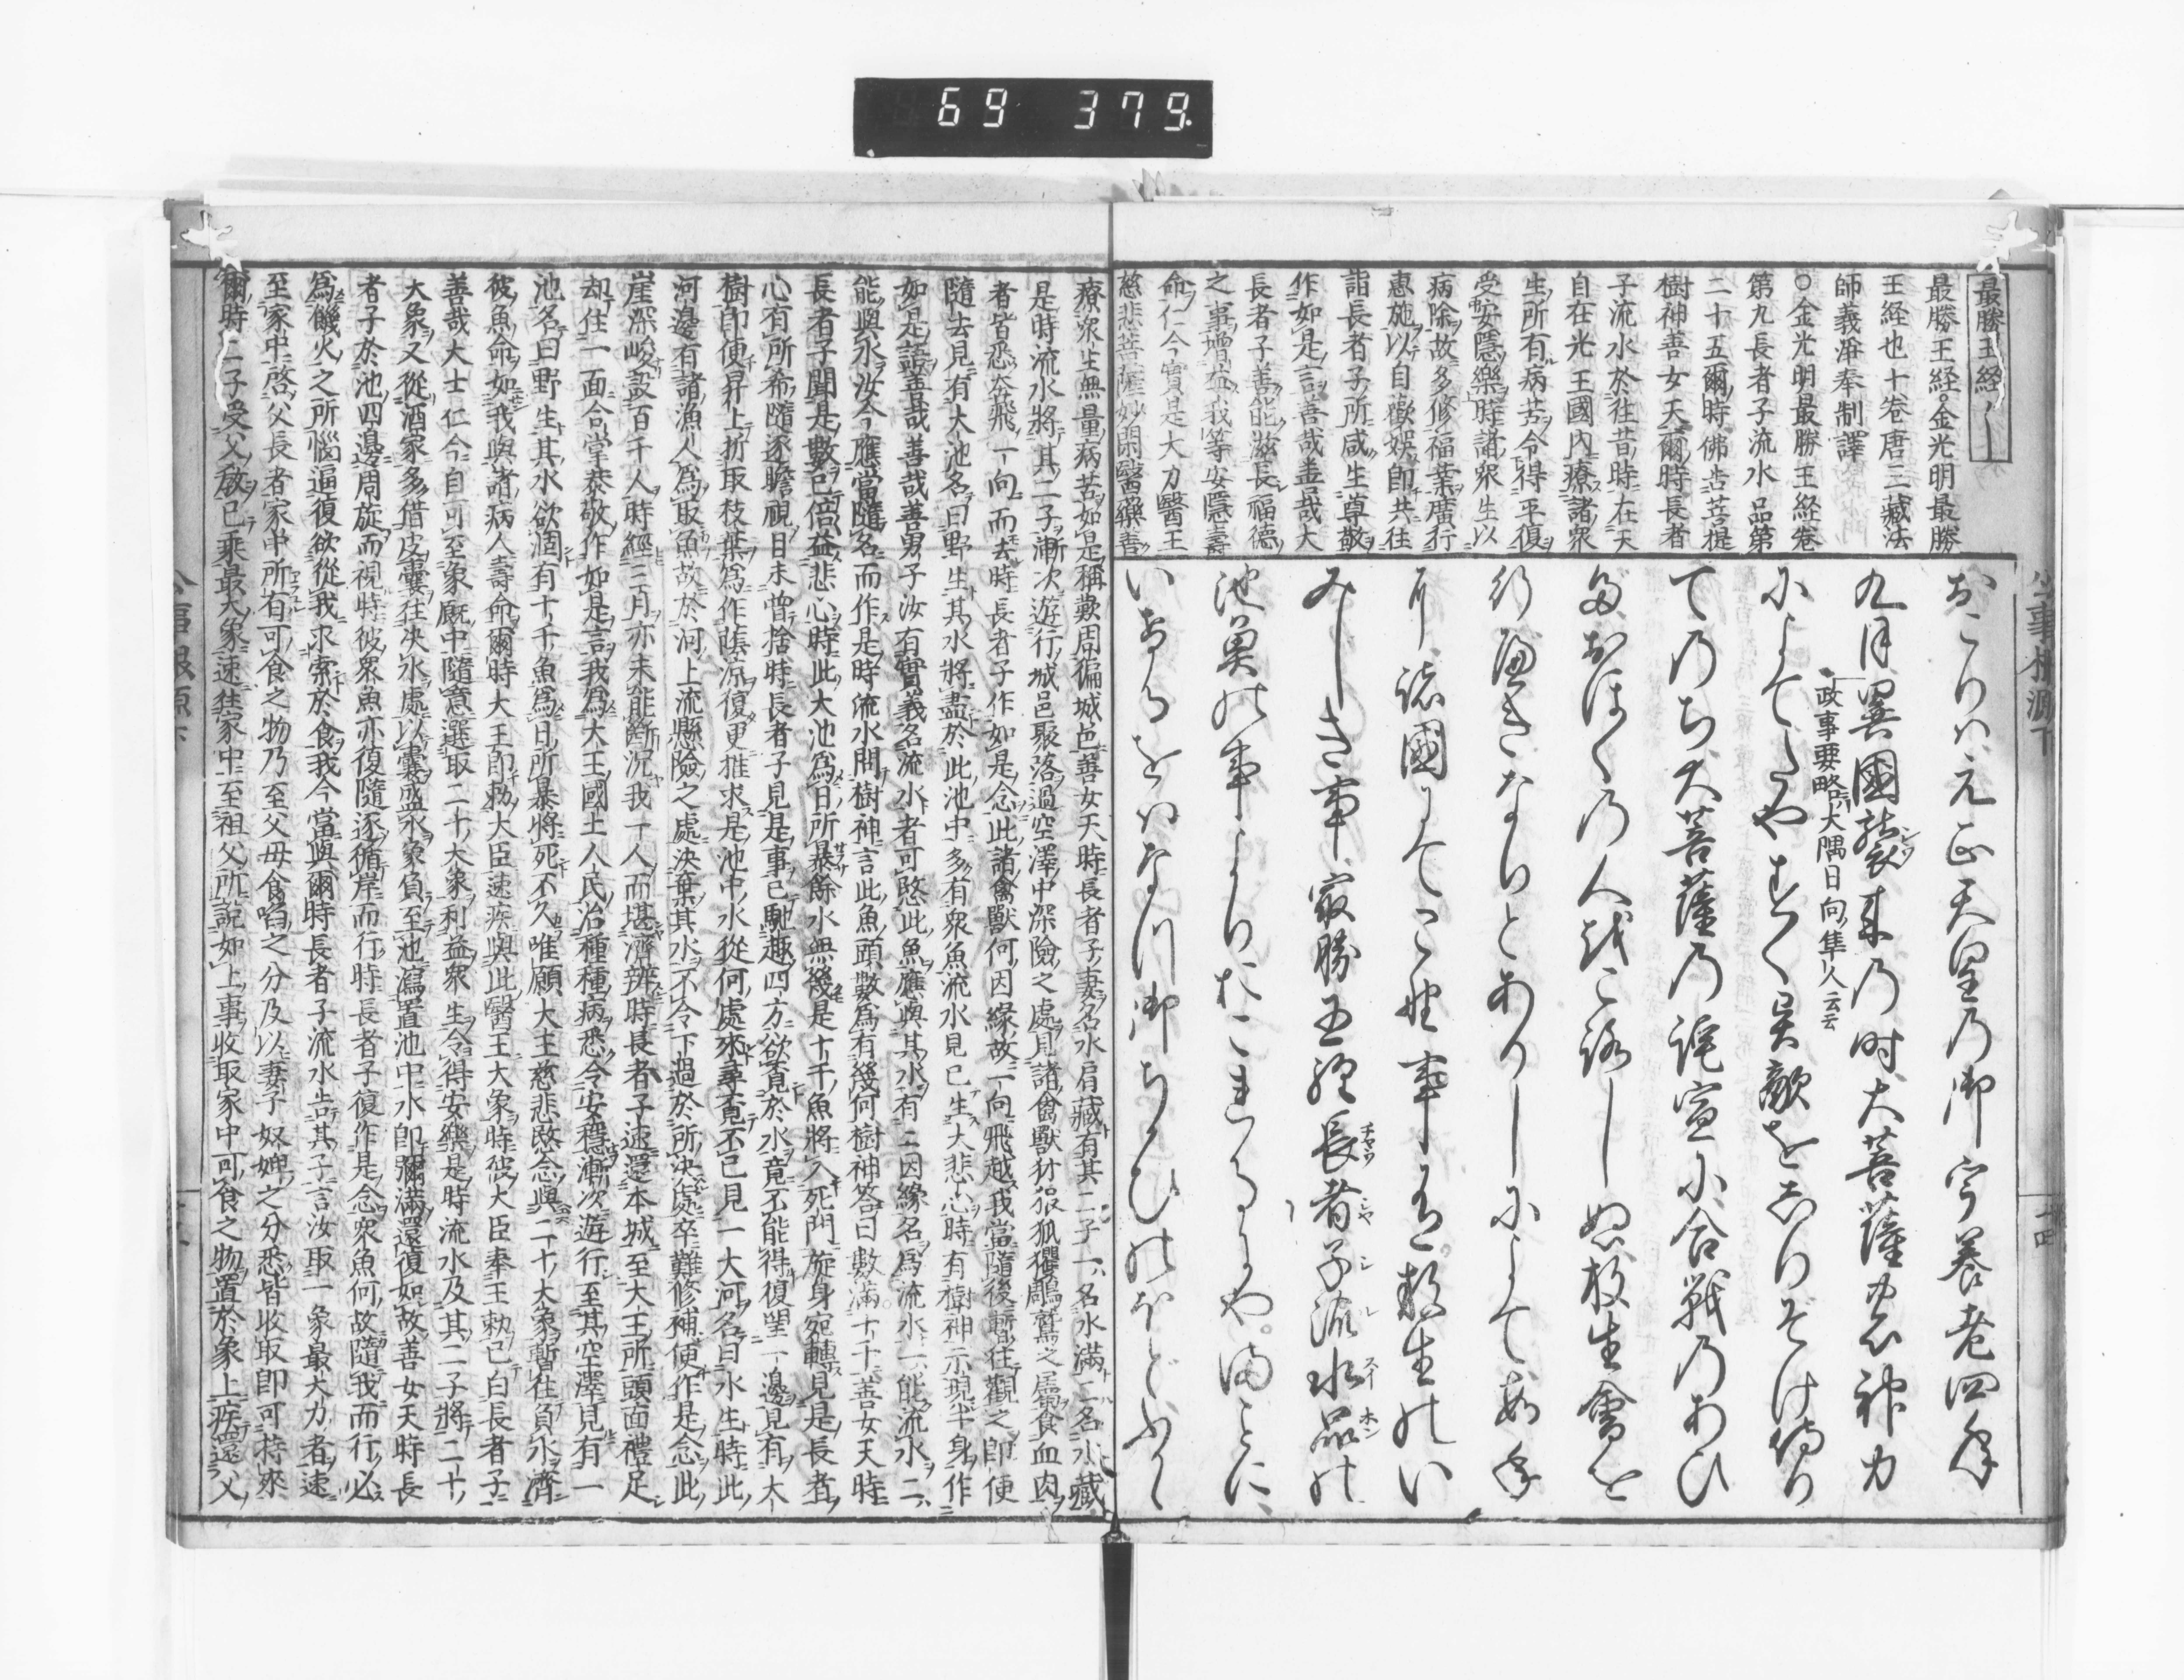 69 379
最勝王経ノ
最勝王経。金光明最勝
王経也十巻唐三藏法
師義淨奉制譯
○金光明最勝王経巻
第九長者子流水品第
二十五爾時佛告菩提
樹神善女天爾時長者
子流水於往昔時在天
自在光王國內療諸衆
生所有病苦令得平復
受安隱樂時諸衆生以
病除故多修福業廣行
惠施以自歡娯即共往
詣長者子所咸生尊敬
作如是言善哉善哉大
長者子善能滋長福德
之事增益我等安隱壽
命仁今實是大力醫王
慈悲菩薩妙閑醫藥善
おこりハ元正天皇乃御宇養老四年
九月異國襲来乃时大菩薩の神力
政事要略大隅日向隼人云云
によてたやすく異敵をしりぞけ給り
て乃ち大菩薩乃詫宣に合戰乃あひ
多おほく乃人越ころしぬ放生會を
行へきなりとありしによて毎年
諸國にてこ此事有放生のい
みしき事最勝王經長者子流水品の
池魚の事よりおこれるにや。まことに
療衆生無量病苦如是稱歎周徧城邑善女天時長者子妻名水肩藏有其二子一名水滿二名水藏
是時流水將其二子漸次遊行城邑聚落過空澤中深險之處見諸禽獸犲狼狐玃鵰鷲之屬食血肉
者皆悉奔飛一向而去時長者子作如是念此諸禽獸何因緣故一向飛越我當隨後暫往觀之即便
隨去見有大池名曰野生其水將盡於此池中多有衆魚流水見已生大悲心時有樹神示現半身作
如是語善哉善哉善男子汝有實義名流水者可愍此魚應與其水有二因緣名爲流水一能流水二
能與水汝今應當隨名而作是時流水問樹神言此魚頭數爲有幾何樹神答曰數滿十千善女天時
長者子聞是數已倍益悲心時此大池爲日所暴餘水無幾是十千魚將入死門旋身宛轉見是長者
心有所希隨逐瞻視目未曾捨時長者子見是事已馳趣四方欲覓於水竟不能得復望一邊見有大
樹即便昇上折取枝葉爲作蔭涼復更推求是池中水從何處來尋覓不已見一大河名曰水生時此
河邊有諸漁人爲取魚故於河上流懸險之處決棄其水不令下過於所決處卒難修補便作是念此
崖深峻設百千人時經三月亦未能斷況我一人而堪濟辨時長者子速還本城至大王所頭面禮足
却住一面合掌恭敬作如是言我爲大王國土人民治種種病悉令安穩漸次遊行至其空澤見有一
池名曰野生其水欲涸有十千魚爲日所暴將死不久唯願大王慈悲愍念與二十大象暫往負水濟
彼魚命如我與諸病人壽命爾時大王即勅大臣速疾與此醫王大象時彼大臣奉王勅已白長者子
善哉大士仁今自可至象厩中隨意選取二十大象利益衆生令得安樂是時流水及其二子將二十
大象又從酒家多借皮囊往決水處以囊盛水象負至池瀉置池中水即彌滿還復如故善女天時長
者子於池四邊周旋而視時彼衆魚亦復隨逐循岸而行時長者子復作是念衆魚何故隨我而行必
爲饑火之所惱逼復欲從我求索於食我今當與爾時長者子流水告其子言汝取一象最大力者速
至家中啓父長者家中所有可食之物乃至父母食噉之分及以妻子奴婢之分悉皆收取即可持來
爾時二子受父敎已乘最大象速往家中至祖父所說如上事收取家中可食之物置於象上疾還父